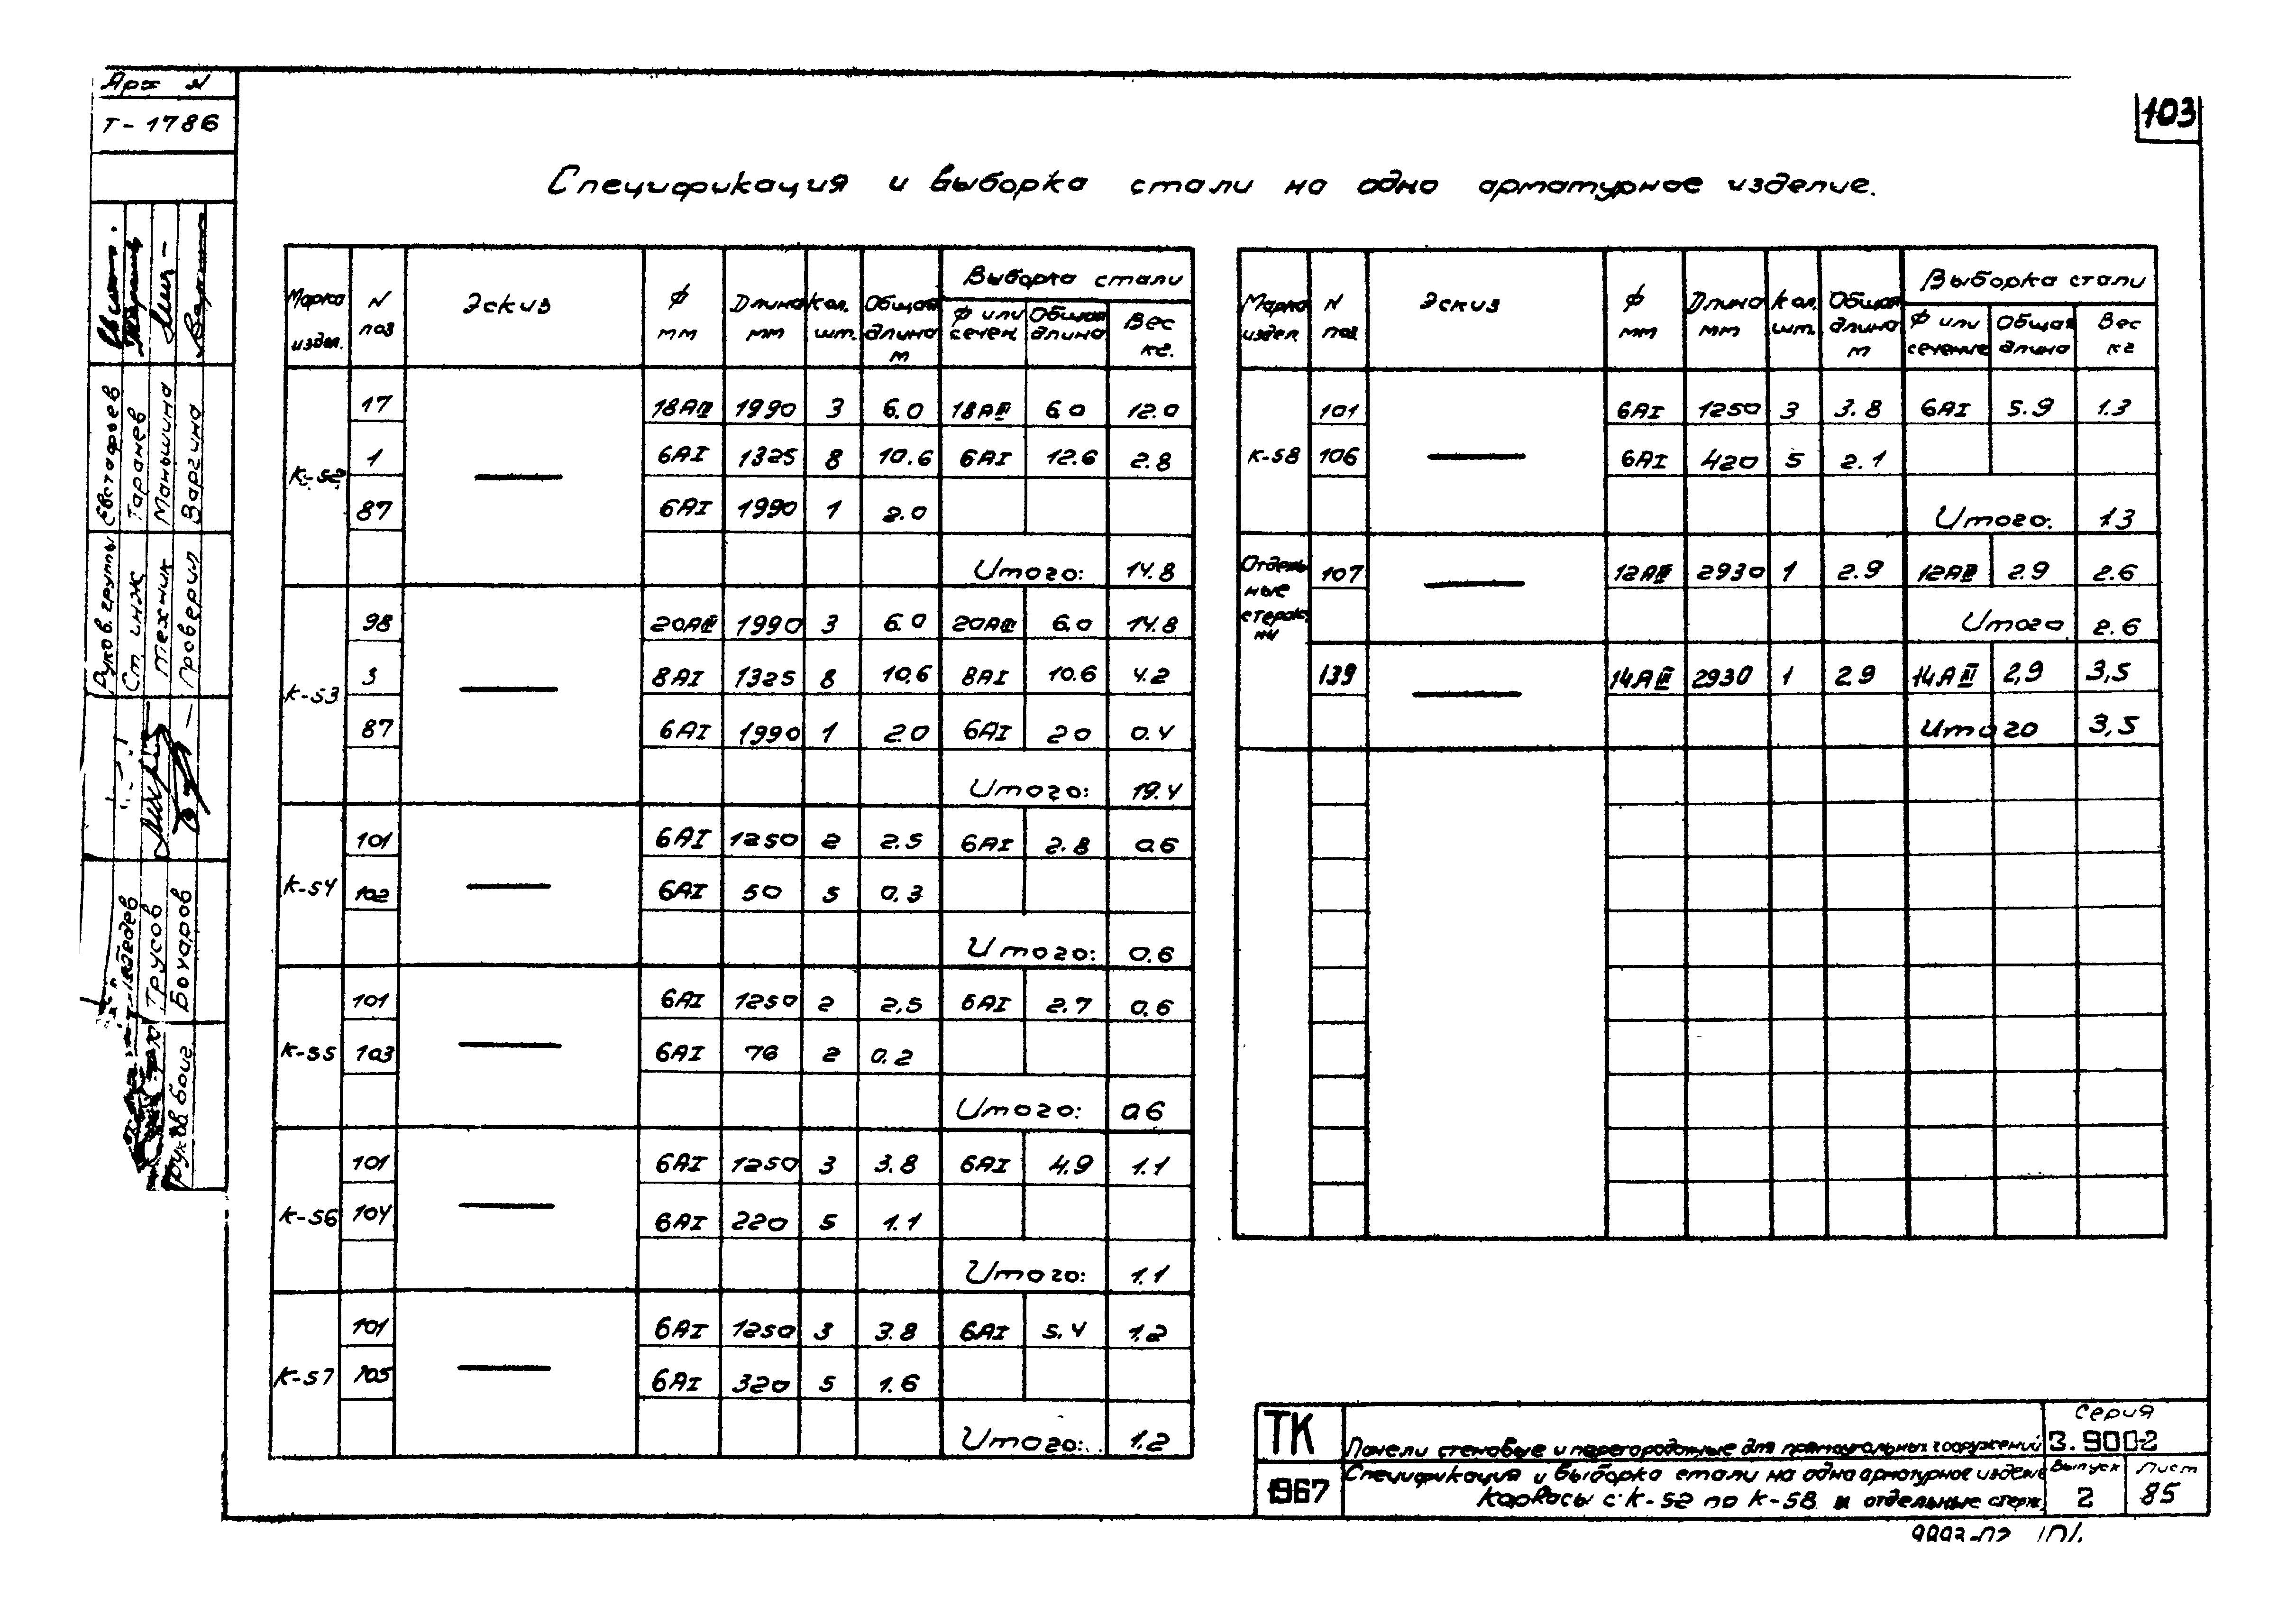 Арх N
Т-1786
103
Спецификация и выборка стали на одно арматурное изделие.
Марка издел. N поз Эскиз ф мм Длина мм Кол. шт. Общая длина м Выборка стали Ф или сечен. Общая длина Вес кг.
К-52
17 18АIII 1990 3 6.0 18АIII 6.0 12.0
1 6АI 1325 8 10.6 6АI 12.6 2.8
87 6АI 1990 1 2.0
Итого: 14.8
К-53
98 20АIII 1990 3 6.0 20АIII 6.0 14.8
3 8АI 1325 8 10.6 8АI 10.6 4.2
87 6АI 1990 1 2.0 6АI 2.0 0.4
Итого: 19.4
К-54
101 6АI 1250 2 2.5 6АI 2.8 0.6
102 6АI 50 5 0.3
Итого: 0.6
К-55
101 6АI 1250 2 2,5 6АI 2.7 0.6
103 6АI 76 2 0.2
Итого: 0.6
К-56
101 6АI 1250 3 3.8 6АI 4.9 1.1
104 6АI 220 5 1.1
Итого: 1.1
К-57
101 6АI 1250 3 3.8 6АI 5.4 1.2
105 6АI 320 5 1.6
Итого: 1.2
Марка издел N поз Эскиз ф мм Длина мм Кол. шт. Общая длина м Выборка стали Ф или сечение Общая длина Вес кг
К-58
101 6АI 1250 3 3.8 6АI 5.9 1.3
106 6АI 420 5 2.1
Итого: 1.3
Отдельные стержни
107 12АIII 2930 1 2.9 12АIII 2.9 2.6
Итого 2.6
139 14АIII 2930 1 2.9 14АIII 2,9 3,5
Итого 3,5
Руков. группы Евстафьев
Ст. инж Таранев
Техник Маньшина
Проверил Варгина
Трусов
Бочаров
ТК
1967
Панели стеновые и перегородочные для прямоугольных сооружений
Серия
3.900-2
Спецификация и выборка стали на одно арматурное изделие
Каркасы с К-52 по К-58 и отдельные стерж.
Выпуск
2
Лист
85